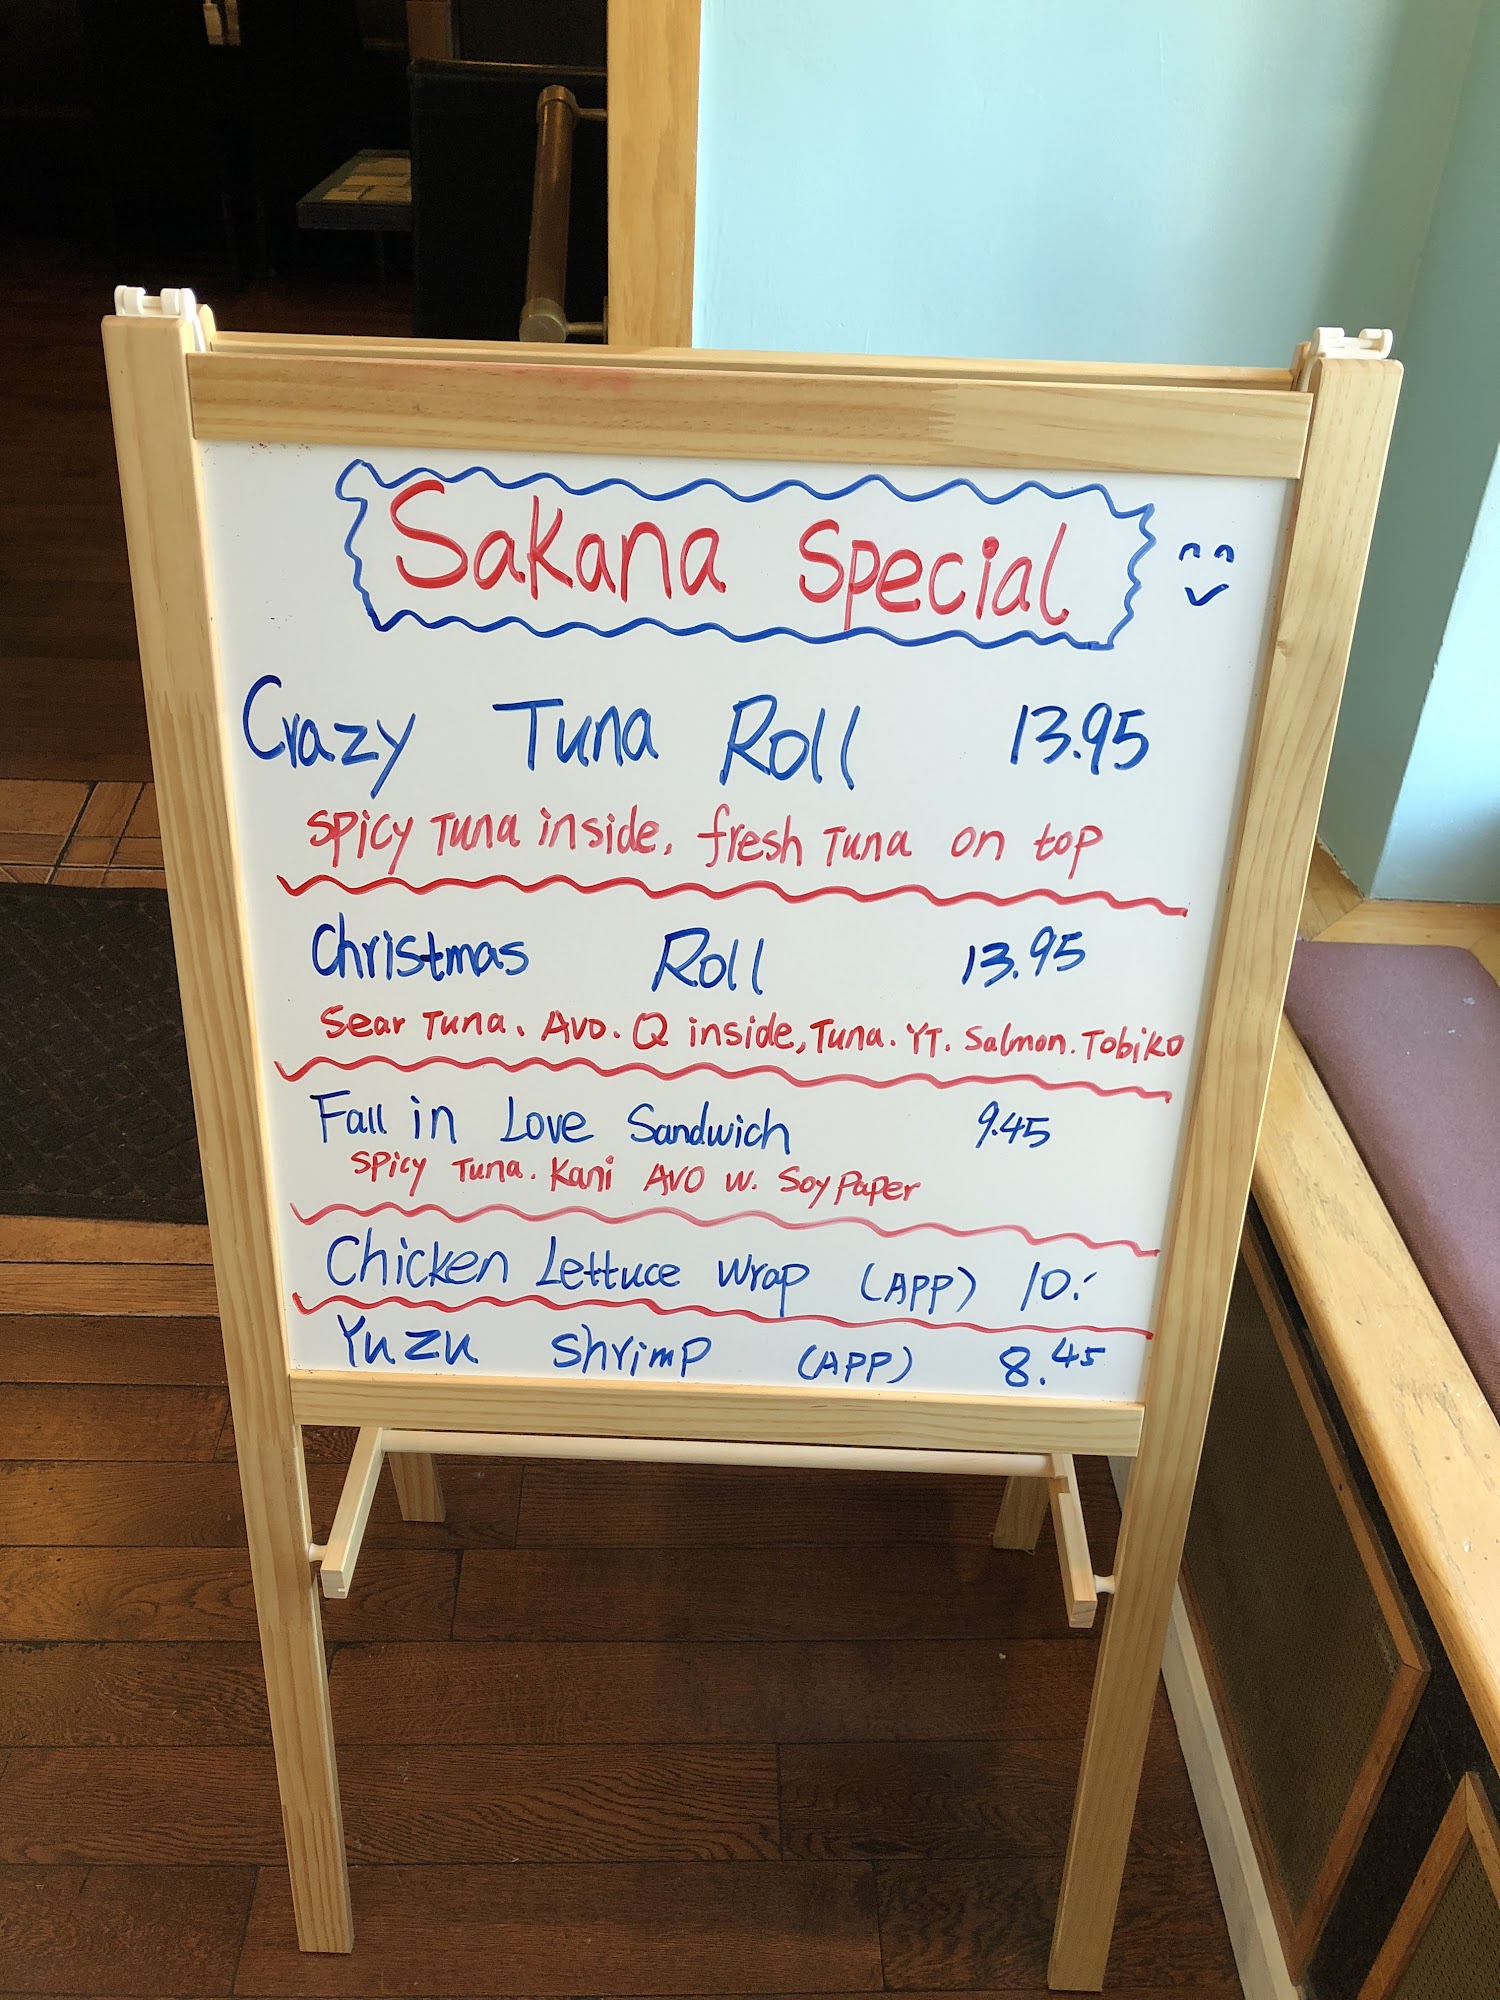 Sakana Special
Crazy Tuna Roll 13.95
Spicy Tuna inside, fresh Tuna on top
Christmas Roll 13.95
Sear Tuna. Avo. Q inside, Tuna. YT. Salmon. Tobiko
Fall in Love Sandwich 9.45
Spicy Tuna. Kani Avo w. Soy Paper
Chicken Lettuce Wrap (APP) 10.-
Yuzu Shrimp (APP) 8.45